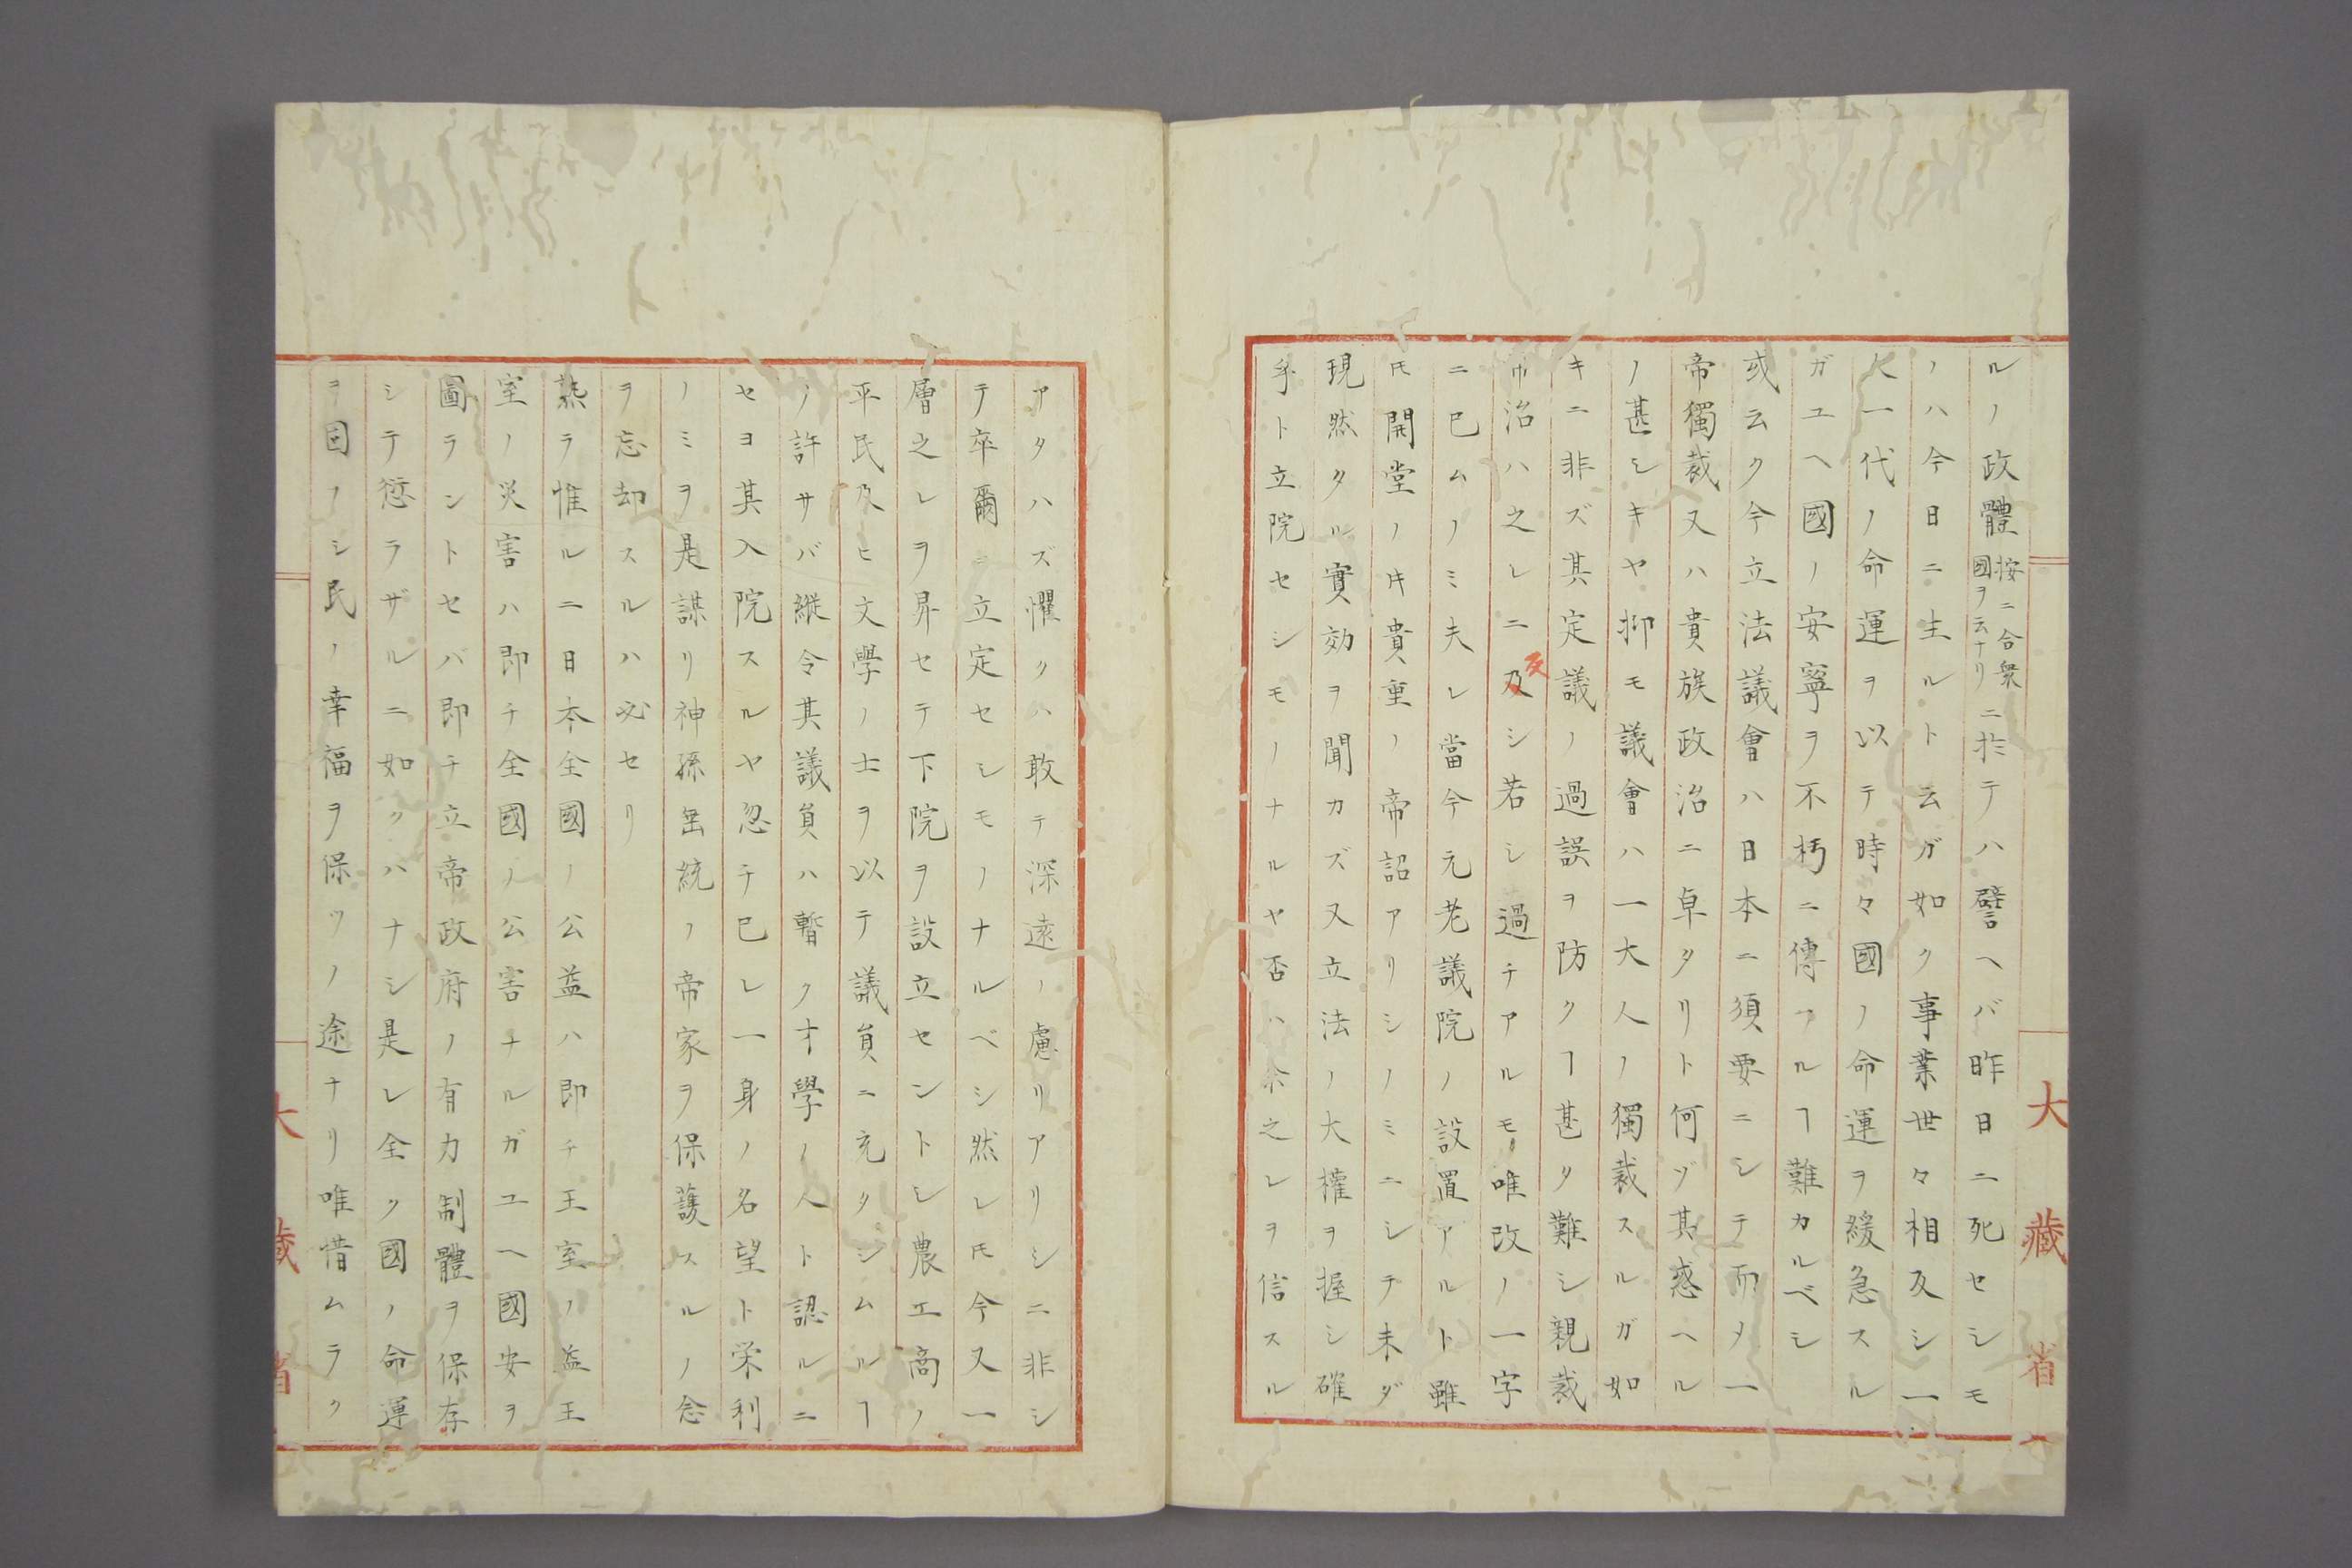 ルノ政體按ニ合衆國ヲ云ナリニ於テハ譬ヘバ昨日ニ死セシモ
ノハ今日ニ生ルト云ガ如ク事業世々相反シ一
人一代ノ命運ヲ以テ時々國ノ命運ヲ緩急スル
ガユヘ國ノ安寧ヲ不朽ニ傳フルヿ難カルベシ
或云ク今立法議會ハ日本ニ須要ニシテ而メ一
帝獨裁又ハ貴族政治ニ卓タリト何ゾ其惑ヘル
ノ甚シキヤ抑モ議會ハ一大人ノ獨裁スルガ如
キニ非ズ其定議ノ過誤ヲ防クヿ甚タ難シ親裁
ノ治ハ之レニ及シ若シ過チアルモ唯改ノ一字
反
ニ已ムノミ夫レ當今元老議院ノ設置アルト雖
モ開堂ノ𪜈貴重ノ帝詔アリシノミニシテ未ダ
現然タル實効ヲ聞カズ又立法ノ大權ヲ握シ確
乎ト立院セシモノナルヤ否ハ余之レヲ信スル
大藏省
アタハズ懼クハ敢テ深遠ノ慮リアリシニ非シ
テ卒爾ニ立定セシモノナルベシ然レ𪜈今又一
層之レヲ昇セテ下院ヲ設立セントシ農工商ノ
平民及ヒ文學ノ士ヲ以テ議員ニ充タシムルヿ
ノ許サバ縱令其議員ハ暫ク才學ノ人ト認ルニ
セヨ其入院スルヤ忽チ已レ一身ノ名望ト栄利
ノミヲ是謀リ神孫無統ノ帝家ヲ保護スルノ念
ヲ忘却スルハ必セリ
熟ラ惟ルニ日本全國ノ公益ハ即チ王室ノ益王
室ノ災害ハ即チ全國ノ公害ナルガユヘ國安ヲ
圖ラントセバ即チ立帝政府ノ有力制體ヲ保存
シテ愆ラザルニ如クハナシ是レ全ク國ノ命運
ヲ固フシ民ノ幸福ヲ保ツノ途ナリ唯惜ムラク
大藏省